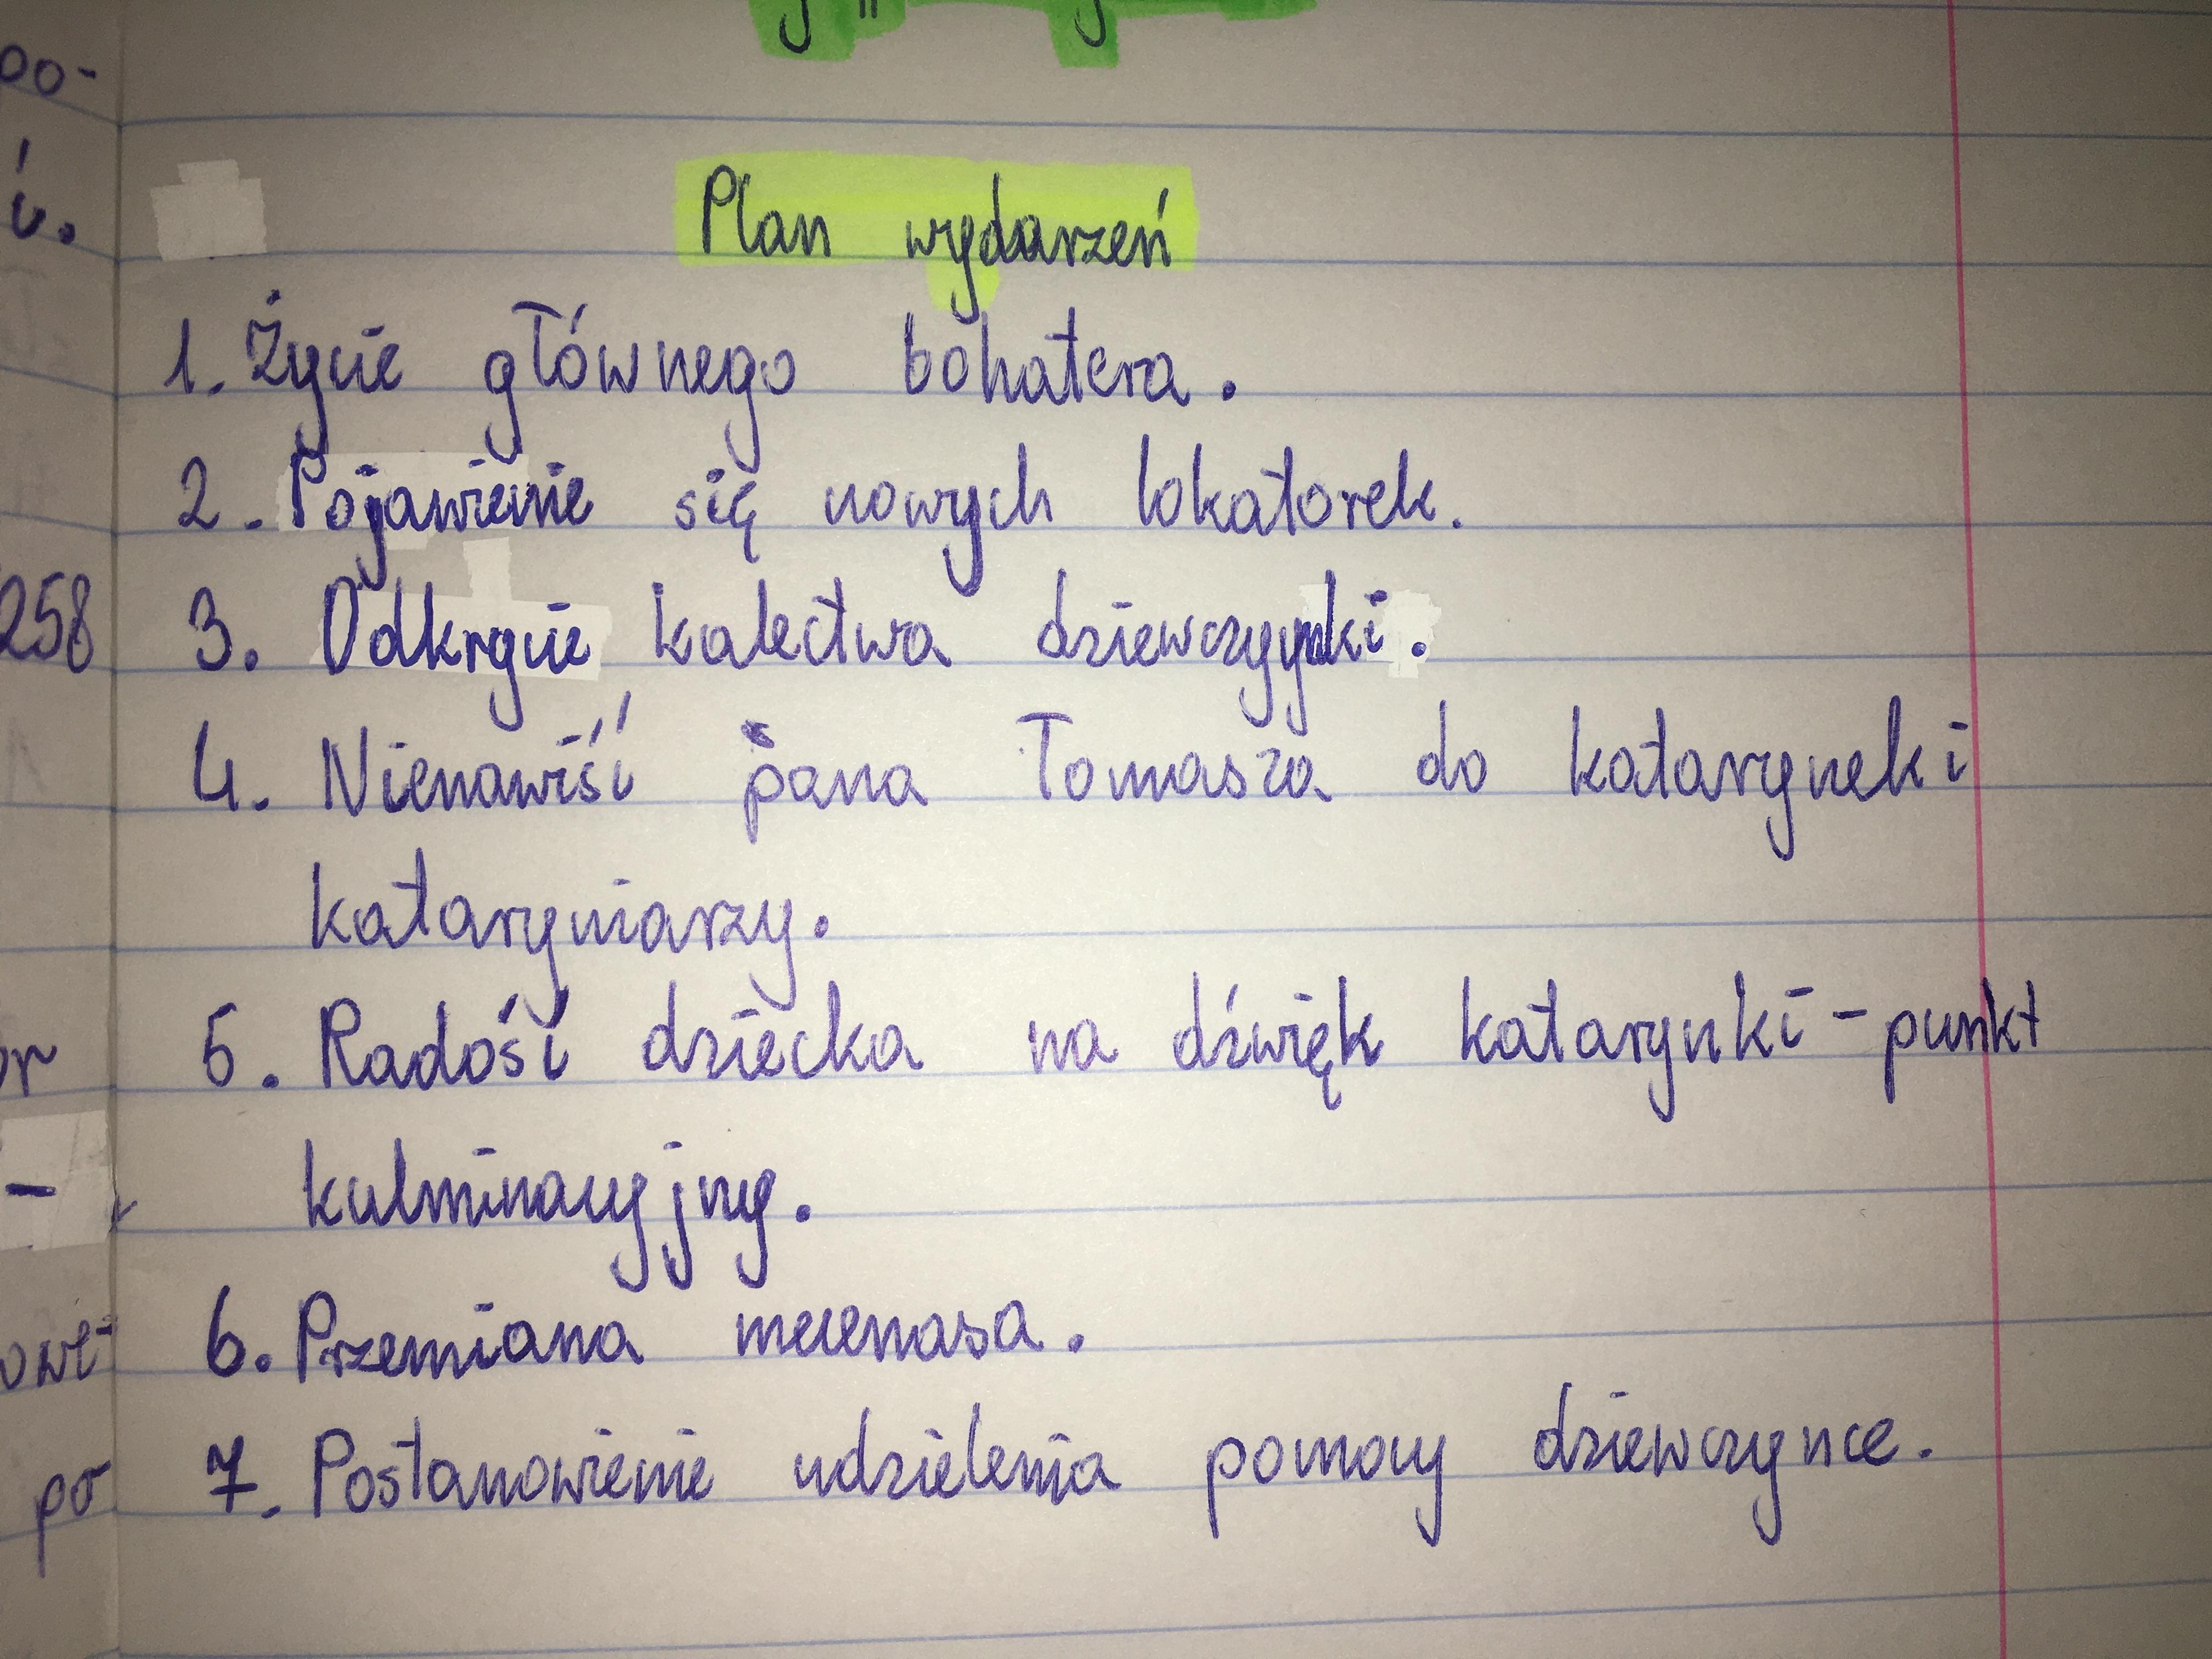 po-
258
Plan wydarzeń
1. Życie głównego bohatera.
2. Pojawienie się nowych lokatorek.
3. Odkrycie kalectwa dziewczynki.
4. Nienawiść pana Tomasza do katarynek i
kataryniarzy.
5. Radość dziecka na dźwięk katarynki - punkt
kulminacyjny.
6. Przemiana mecenasa.
7. Postanowienie udzielenia pomocy dziewczynce.
po